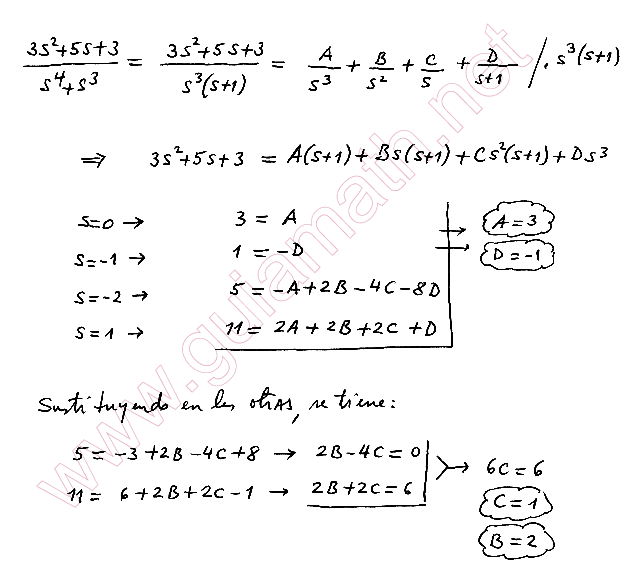 (3s²+5s+3)/(s⁴+s³) = (3s²+5s+3)/(s³(s+1)) = A/s³ + B/s² + C/s + D/(s+1) /. s³(s+1)
⇒ 3s²+5s+3 = A(s+1)+Bs(s+1)+Cs²(s+1)+Ds³
s=0 → 3 = A → A=3
s=-1 → 1 = -D → D=-1
s=-2 → 5 = -A+2B-4C-8D
s=1 → 11 = 2A+2B+2C+D
Sustituyendo en las otras, se tiene:
5 = -3+2B-4C+8 → 2B-4C=0
11 = 6+2B+2C-1 → 2B+2C=6
→ 6C=6
C=1
B=2
www.guiamath.net